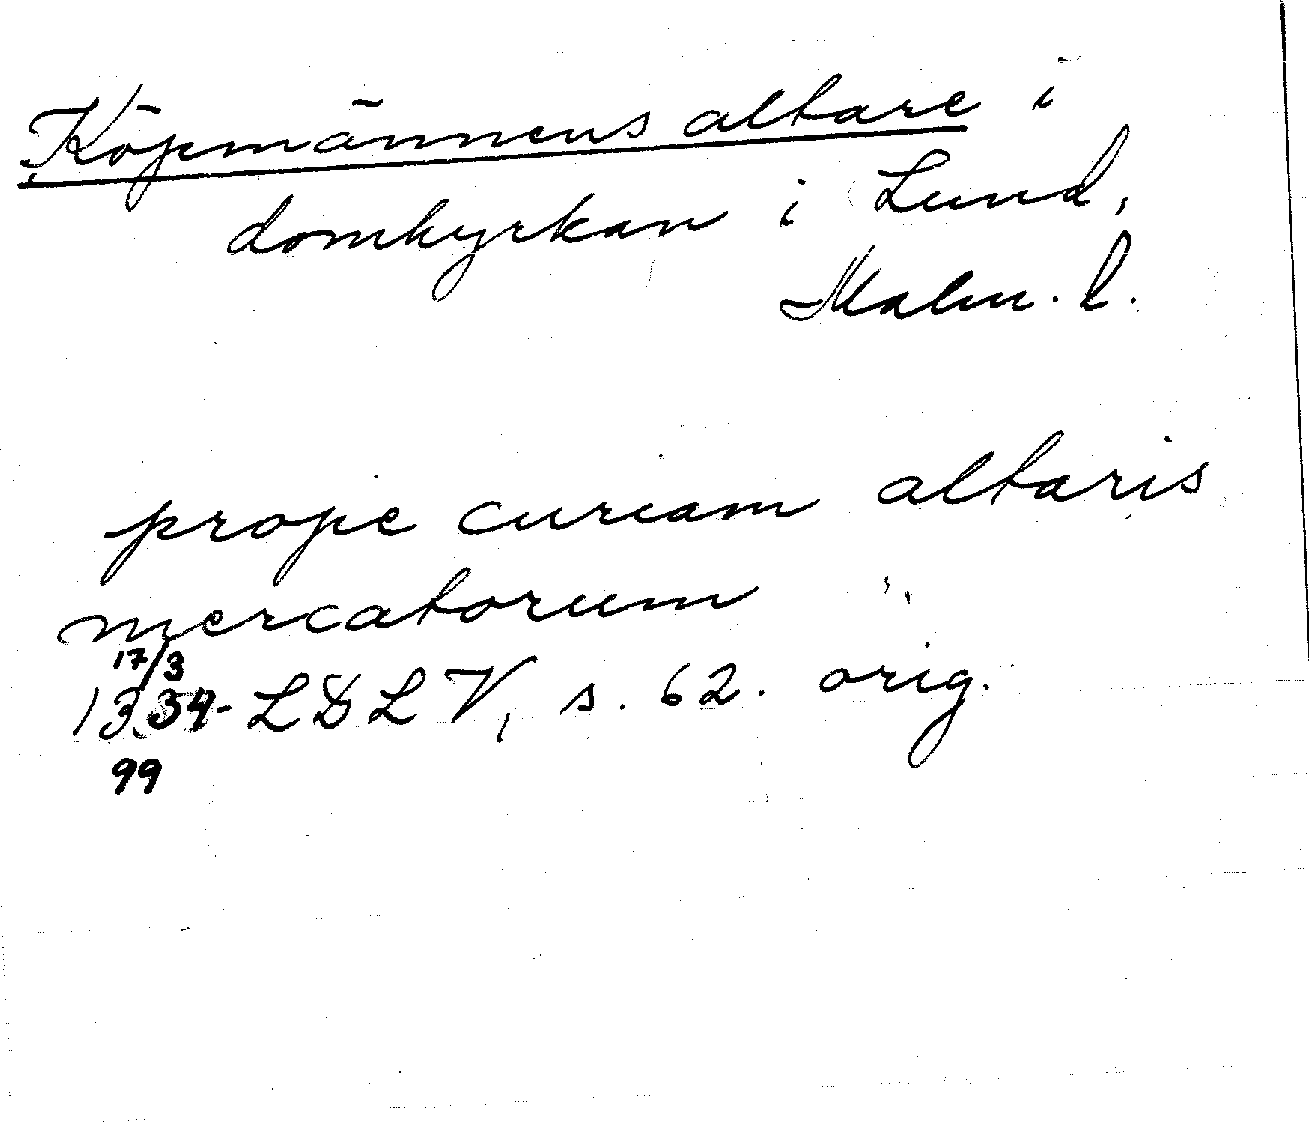 Köpmännens altare i
domkyrkan i Lund,
Malm. l.
prope curiam altaris
mercatorum
17/3
1334-LDLV, s. 62. orig.
99